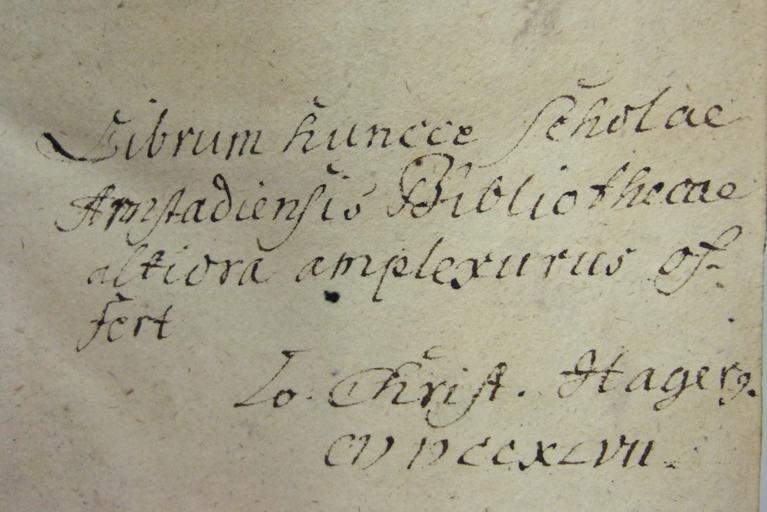 Librum huncce Scholae
Arnstadiensis Bibliothecae
altiora amplexurus of-
fert
Io. Christ. Hagerg.
CIƆ IƆCCXLVII.